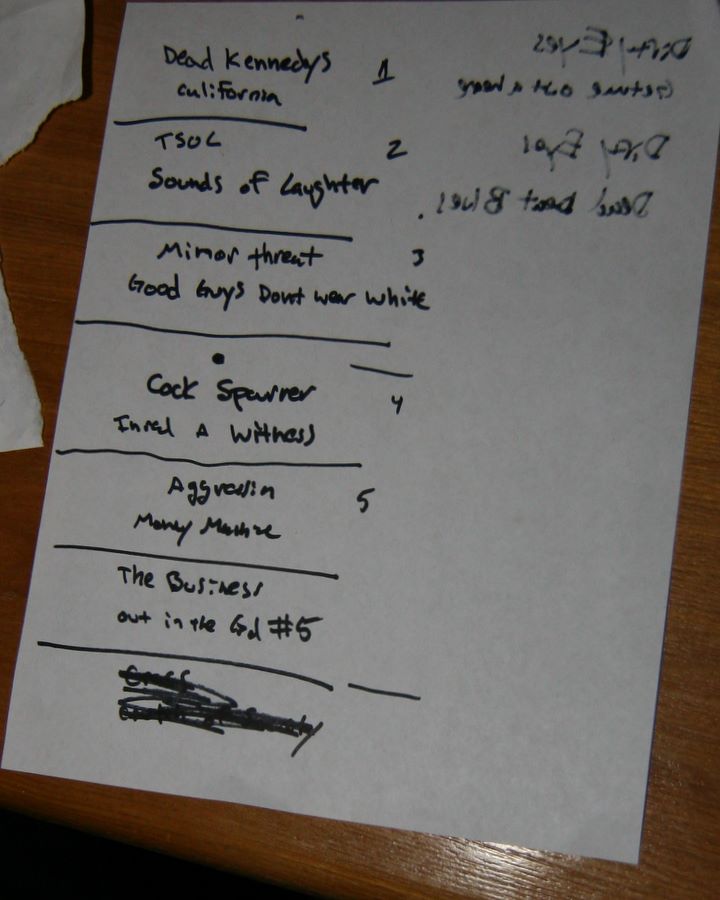 Dead Kennedys 1
California
TSOL 2
Sounds of Laughter
Minor threat 3
Good Guys Dont wear white
Cock Sparrer 4
A Witness
Aggression 5
Money Machine
The Business
out in the #5
Dirty Eyes
Dirty Eyes
Dead beat Blues